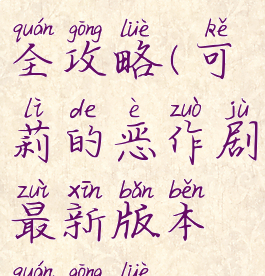 quán gōng lüè kě
全攻略(可
lì de è zuò jù
莉的恶作剧
zuì xīn bǎn běn
最新版本
quán gōng lüè